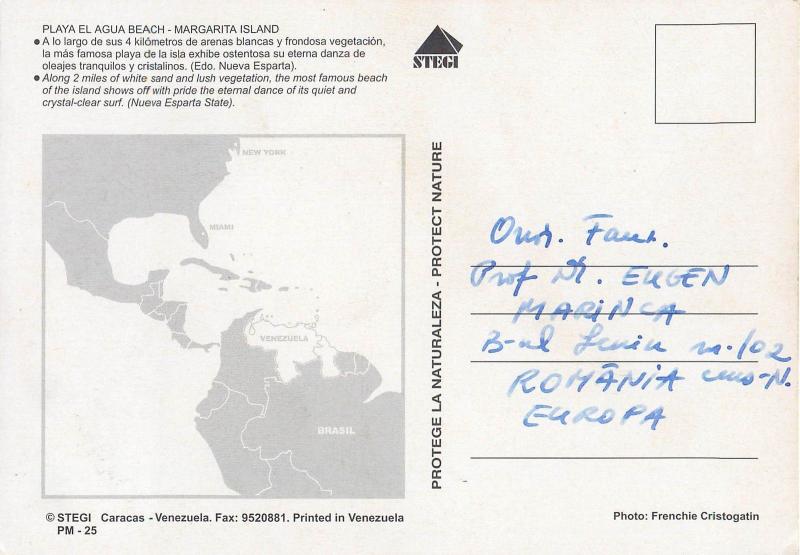 PLAYA EL AGUA BEACH - MARGARITA ISLAND
● A lo largo de sus 4 kilómetros de arenas blancas y frondosa vegetación,
la más famosa playa de la isla exhibe ostentosa su eterna danza de
oleajes tranquilos y cristalinos. (Edo. Nueva Esparta).
● Along 2 miles of white sand and lush vegetation, the most famous beach
of the island shows off with pride the eternal dance of its quiet and
crystal-clear surf. (Nueva Esparta State).
NEW YORK
MIAMI
VENEZUELA
BRASIL
© STEGI Caracas - Venezuela. Fax: 9520881. Printed in Venezuela
PM - 25
STEGI
PROTEGE LA NATURALEZA - PROTECT NATURE
Fam.
Prof Dr. EUGEN
MARINCA
B-ul Lenin nr. 102
ROMÂNIA
EUROPA
Photo: Frenchie Cristogatin